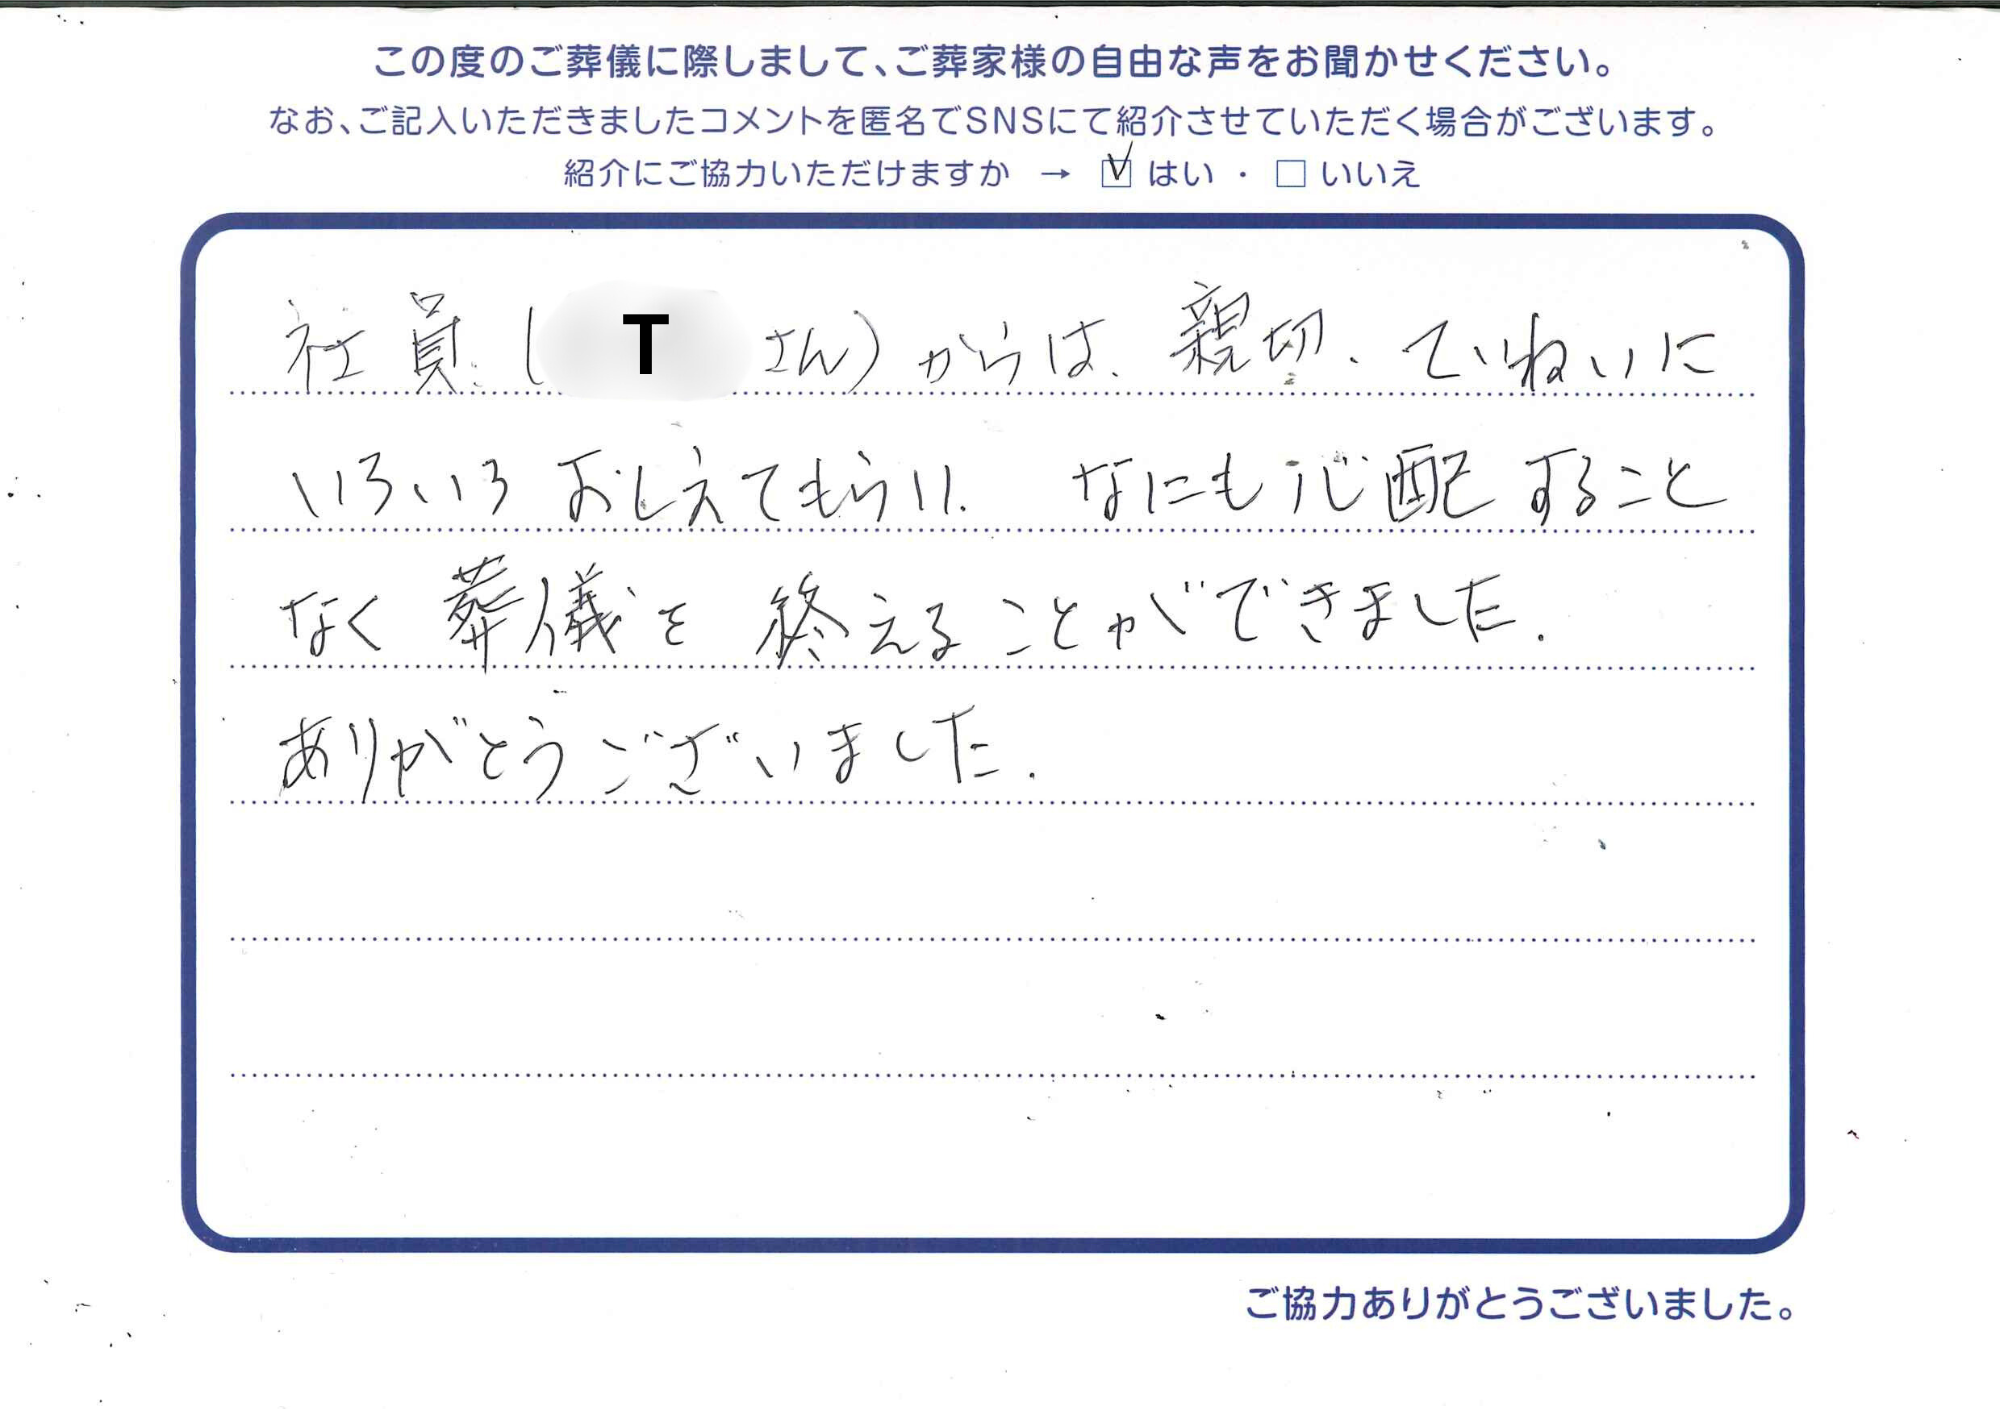 この度のご葬儀に際しまして、ご葬家様の自由な声をお聞かせください。
なお、ご記入いただきましたコメントを匿名でSNSにて紹介させていただく場合がございます。
紹介にご協力いただけますか → ☑ はい ・ □ いいえ
社員(Tさん)からは、親切、ていねいに
いろいろおしえてもらい、なにも心配すること
なく葬儀を終えることができました。
ありがとうございました。
ご協力ありがとうございました。